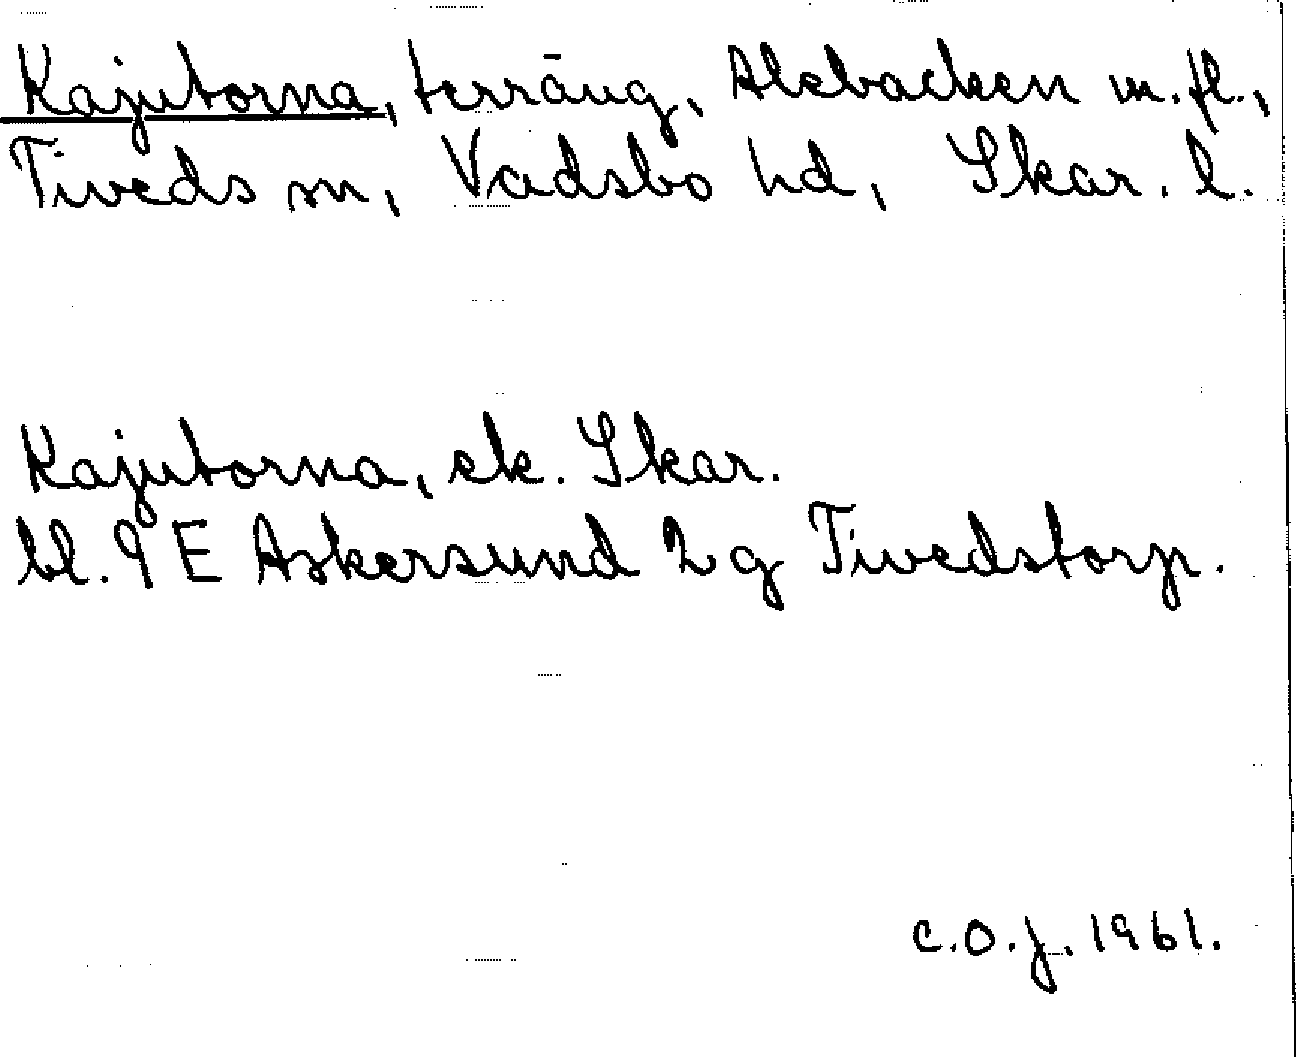 Kajutorna, terräng, Alebacken m.fl.,
Tiveds sn, Vadsbo hd, Skar. l.
Kajutorna, ek. Skar.
bl. 9 E Askersund 2 g Tivedstorp.
C.O.J. 1961.